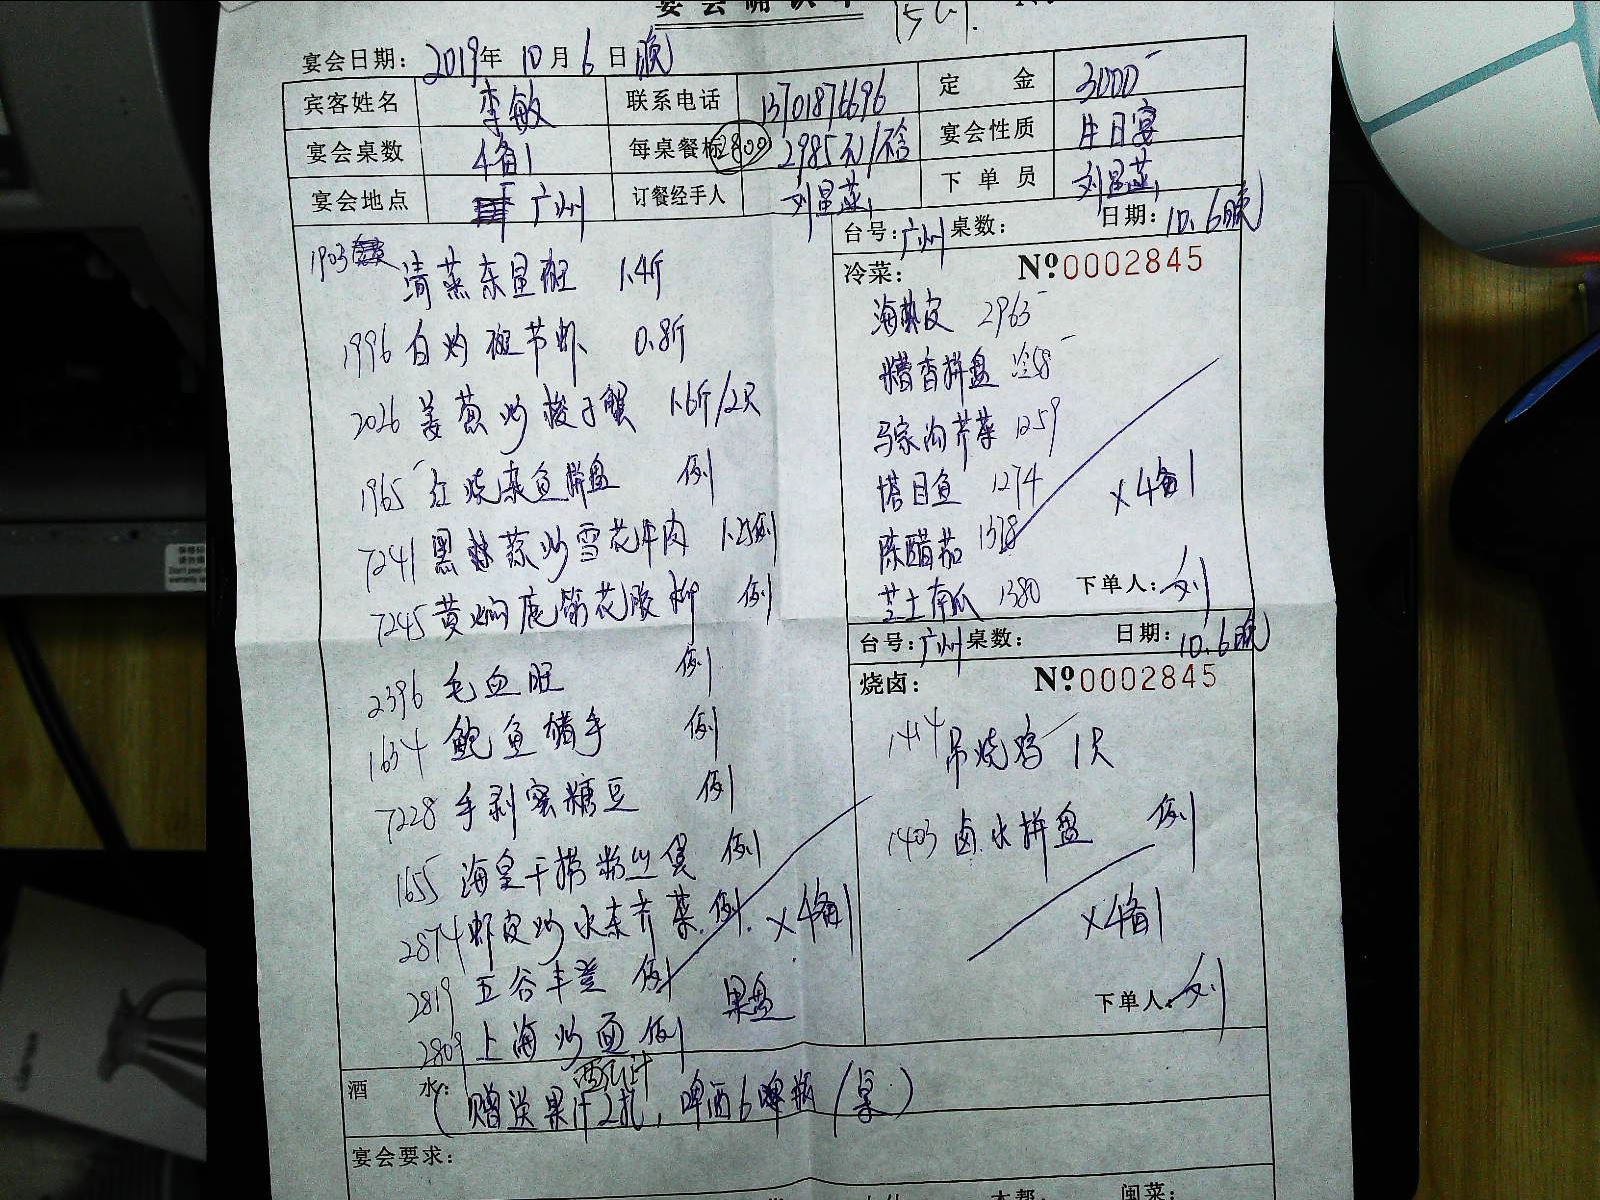 宴会确认单
宴会日期：2019年10月6日晚
宾客姓名 李敏 联系电话 13701876696 定金 3000-
宴会桌数 4备1 每桌餐标 2800 2985元/ 宴会性质 生日宴
宴会地点 广州 订餐经手人 刘 下单员 刘
台号：广州 桌数： 日期：10.6晚
1903 清蒸东星斑 1.4斤
1996 白灼斑节虾 0.8斤
2026 姜葱炒梭子蟹 1.6斤/2只
1965 红烧 鱼拼盘 例
7241 黑 蒜炒雪花牛肉 1.25例
7245 黄焖 花胶 例
2396 毛血旺 例
1634 鲍鱼猪手 例
7228 手剥蜜糖豆 例
1655 海皇干捞粉丝煲 例
2874 虾皮炒水东芥菜 例 ×4备1
2819 五谷丰登 例
果盘
2809 上海炒面 例
冷菜： №0002845
海蜇皮 2963-
糟香拼盘 冷58-
马家沟芹菜 1259
塔目鱼 1274
陈醋茄 1378
芝士南瓜 1380
×4备1
下单人：刘
台号：广州 桌数： 日期：10.6晚
烧卤： №0002845
1414 吊烧鸡 1只
1403 卤水拼盘 例
×4备1
下单人：刘
西瓜汁
酒水：（赠送果汁2扎，啤酒6瓶（桌）
宴会要求：
本帮： 闽菜：